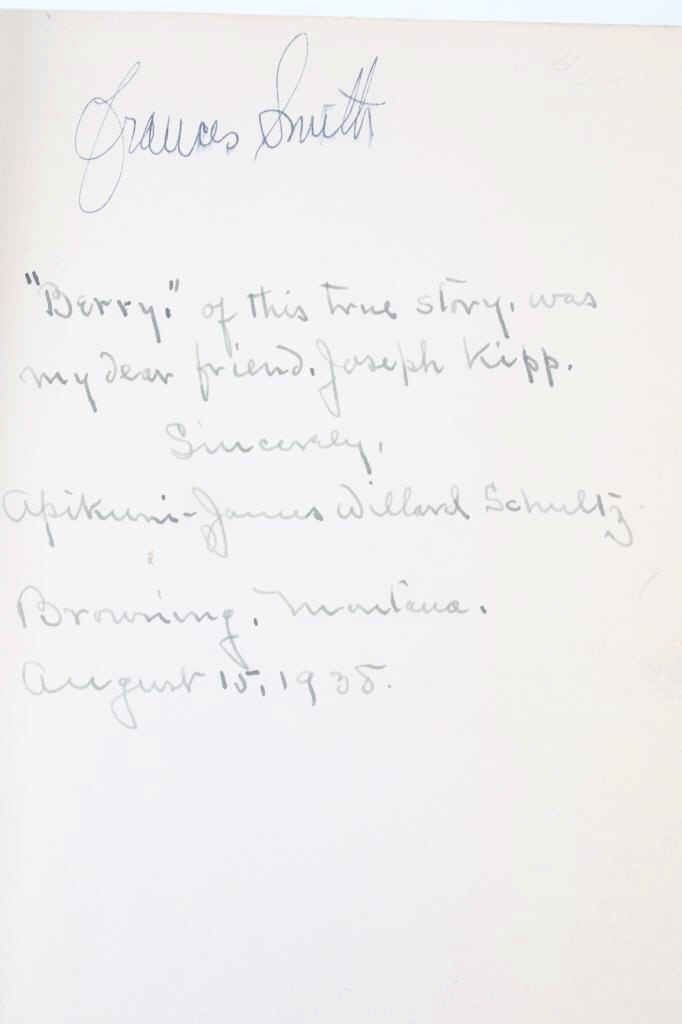 Frances Smith
"Berry." of this true story, was
my dear friend. Joseph Kipp.
Sincerely,
Apikuni - James Willard Schultz
Browning, Montana.
August 15, 1935.